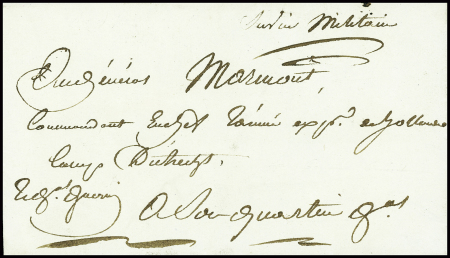 Service Militaire
Au Général Marmont,
Commandant En chef l'armée exp.re de hollande
Camp D'utrecht.
A Son quartier g.al